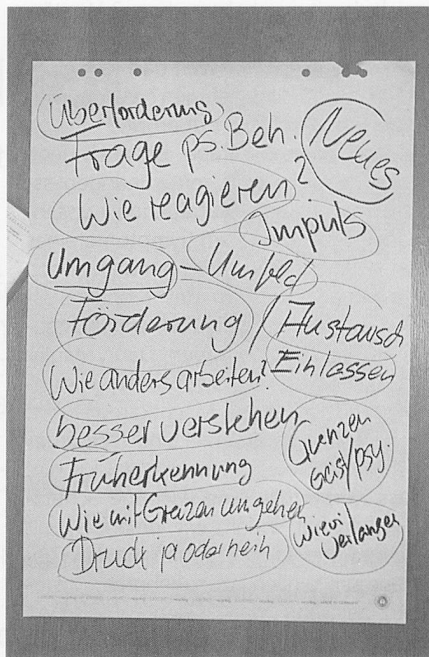 Überforderung
Frage ps. Beh.
Neues
Wie reagieren?
Impuls
Umgang - Umfeld
Förderung / Austausch
Wie anders arbeiten?
Einlassen
besser verstehen
Grenzen
Geist/psy.
Früherkennung
Wie mit Grenzen umgehen
Druck ja oder nein
wievi
verlangen